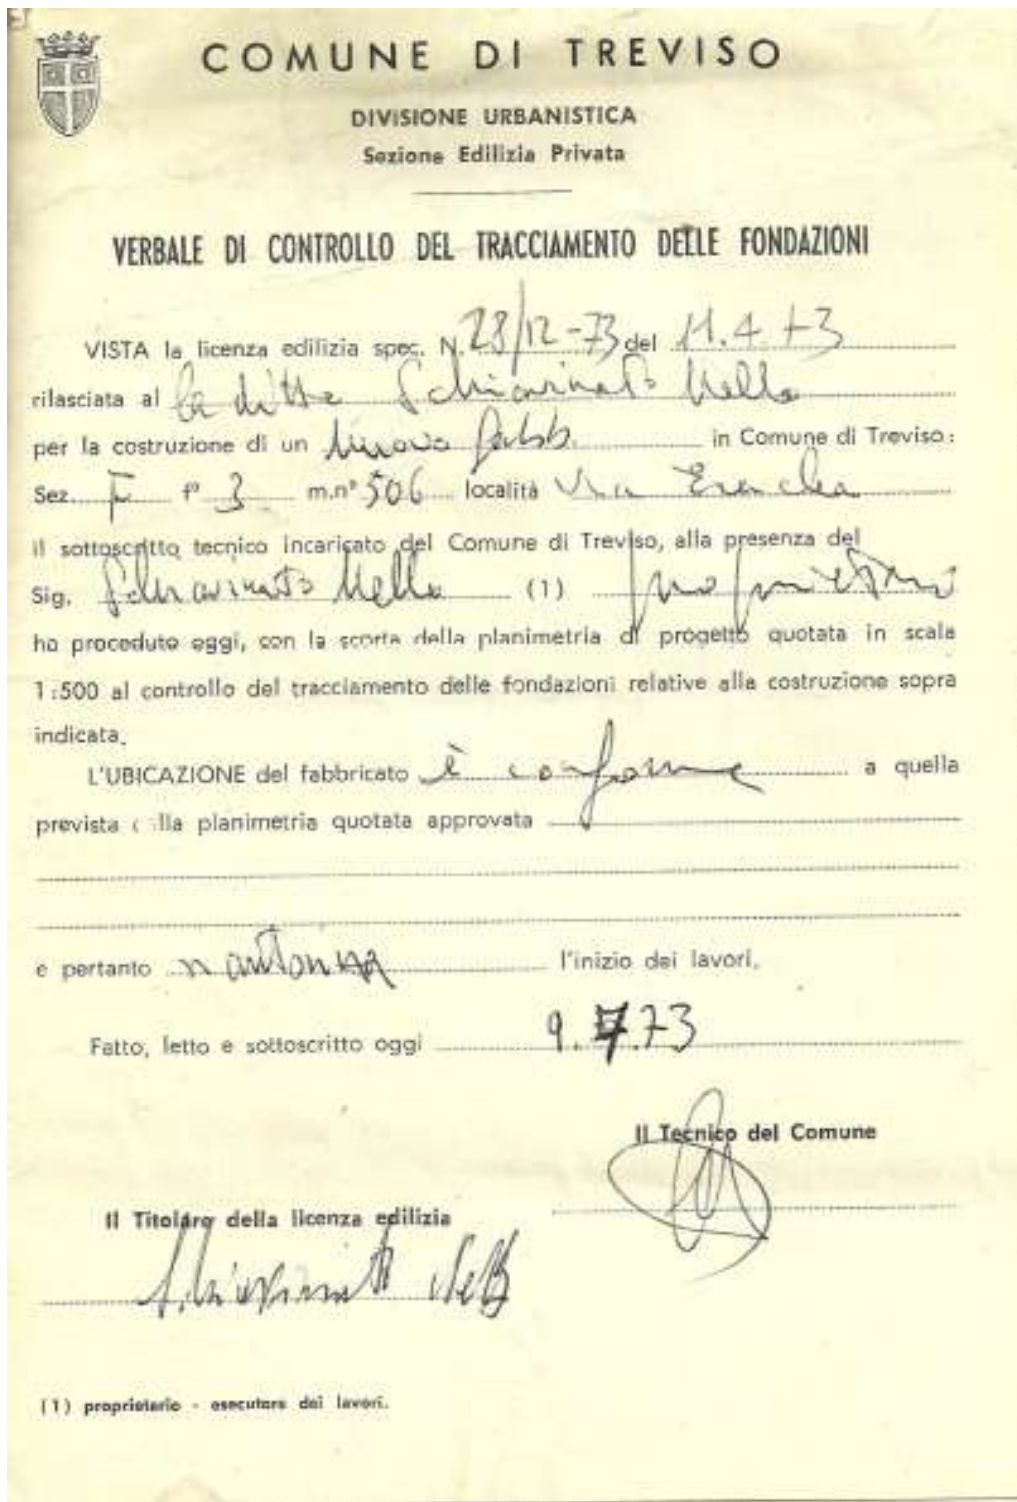 COMUNE DI TREVISO
DIVISIONE URBANISTICA
Sezione Edilizia Privata
VERBALE DI CONTROLLO DEL TRACCIAMENTO DELLE FONDAZIONI
VISTA la licenza edilizia spec. N. 28/12-73 del 11.4.73
rilasciata al la ditta Schiavinato Nello
per la costruzione di un nuovo fabb. in Comune di Treviso:
Sez. F f° 3 m.n° 506 località Via Eraclea
il sottoscritto tecnico incaricato del Comune di Treviso, alla presenza del
Sig. Schiavinato Nello (1) proprietario
ha proceduto oggi, con la scorta della planimetria di progetto quotata in scala
1:500 al controllo del tracciamento delle fondazioni relative alla costruzione sopra
indicata.
L'UBICAZIONE del fabbricato è conforme a quella
prevista dalla planimetria quotata approvata
e pertanto si autorizza l'inizio dei lavori.
Fatto, letto e sottoscritto oggi 9. 7 73
Il Tecnico del Comune
Il Titolare della licenza edilizia
Schiavinato Nello
(1) proprietario - esecutore dei lavori.